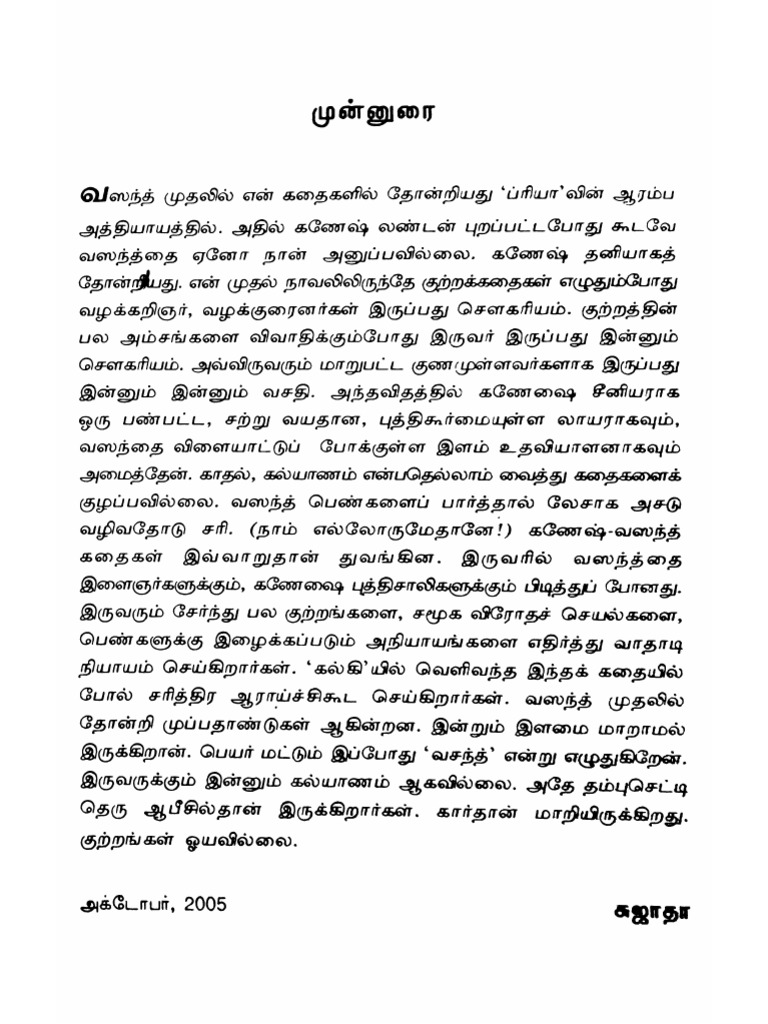 முன்னுரை
வஸந்த் முதலில் என் கதைகளில் தோன்றியது ‘ப்ரியா’வின் ஆரம்ப
அத்தியாயத்தில். அதில் கணேஷ் லண்டன் புறப்பட்டபோது கூடவே
வஸந்த்தை ஏனோ நான் அனுப்பவில்லை. கணேஷ் தனியாகத்
தோன்றியது. என் முதல் நாவலிலிருந்தே குற்றக்கதைகள் எழுதும்போது
வழக்கறிஞர், வழக்குரைனர்கள் இருப்பது சௌகரியம். குற்றத்தின்
பல அம்சங்களை விவாதிக்கும்போது இருவர் இருப்பது இன்னும்
சௌகரியம். அவ்விருவரும் மாறுபட்ட குணமுள்ளவர்களாக இருப்பது
இன்னும் இன்னும் வசதி. அந்தவிதத்தில் கணேஷை சீனியராக
ஒரு பண்பட்ட, சற்று வயதான, புத்திகூர்மையுள்ள லாயராகவும்,
வஸந்தை விளையாட்டுப் போக்குள்ள இளம் உதவியாளனாகவும்
அமைத்தேன். காதல், கல்யாணம் என்பதெல்லாம் வைத்து கதைகளைக்
குழப்பவில்லை. வஸந்த் பெண்களைப் பார்த்தால் லேசாக அசடு
வழிவதோடு சரி. (நாம் எல்லோருமேதானே!) கணேஷ்-வஸந்த்
கதைகள் இவ்வாறுதான் துவங்கின. இருவரில் வஸந்த்தை
இளைஞர்களுக்கும், கணேஷை புத்திசாலிகளுக்கும் பிடித்துப் போனது.
இருவரும் சேர்ந்து பல குற்றங்களை, சமூக விரோதச் செயல்களை,
பெண்களுக்கு இழைக்கப்படும் அநியாயங்களை எதிர்த்து வாதாடி
நியாயம் செய்கிறார்கள். ‘கல்கி’யில் வெளிவந்த இந்தக் கதையில்
போல் சரித்திர ஆராய்ச்சிகூட செய்கிறார்கள். வஸந்த் முதலில்
தோன்றி முப்பதாண்டுகள் ஆகின்றன. இன்றும் இளமை மாறாமல்
இருக்கிறான். பெயர் மட்டும் இப்போது ‘வசந்த்’ என்று எழுதுகிறேன்.
இருவருக்கும் இன்னும் கல்யாணம் ஆகவில்லை. அதே தம்புசெட்டி
தெரு ஆபீசில்தான் இருக்கிறார்கள். கார்தான் மாறியிருக்கிறது.
குற்றங்கள் ஓயவில்லை.
அக்டோபர், 2005
சுஜாதா